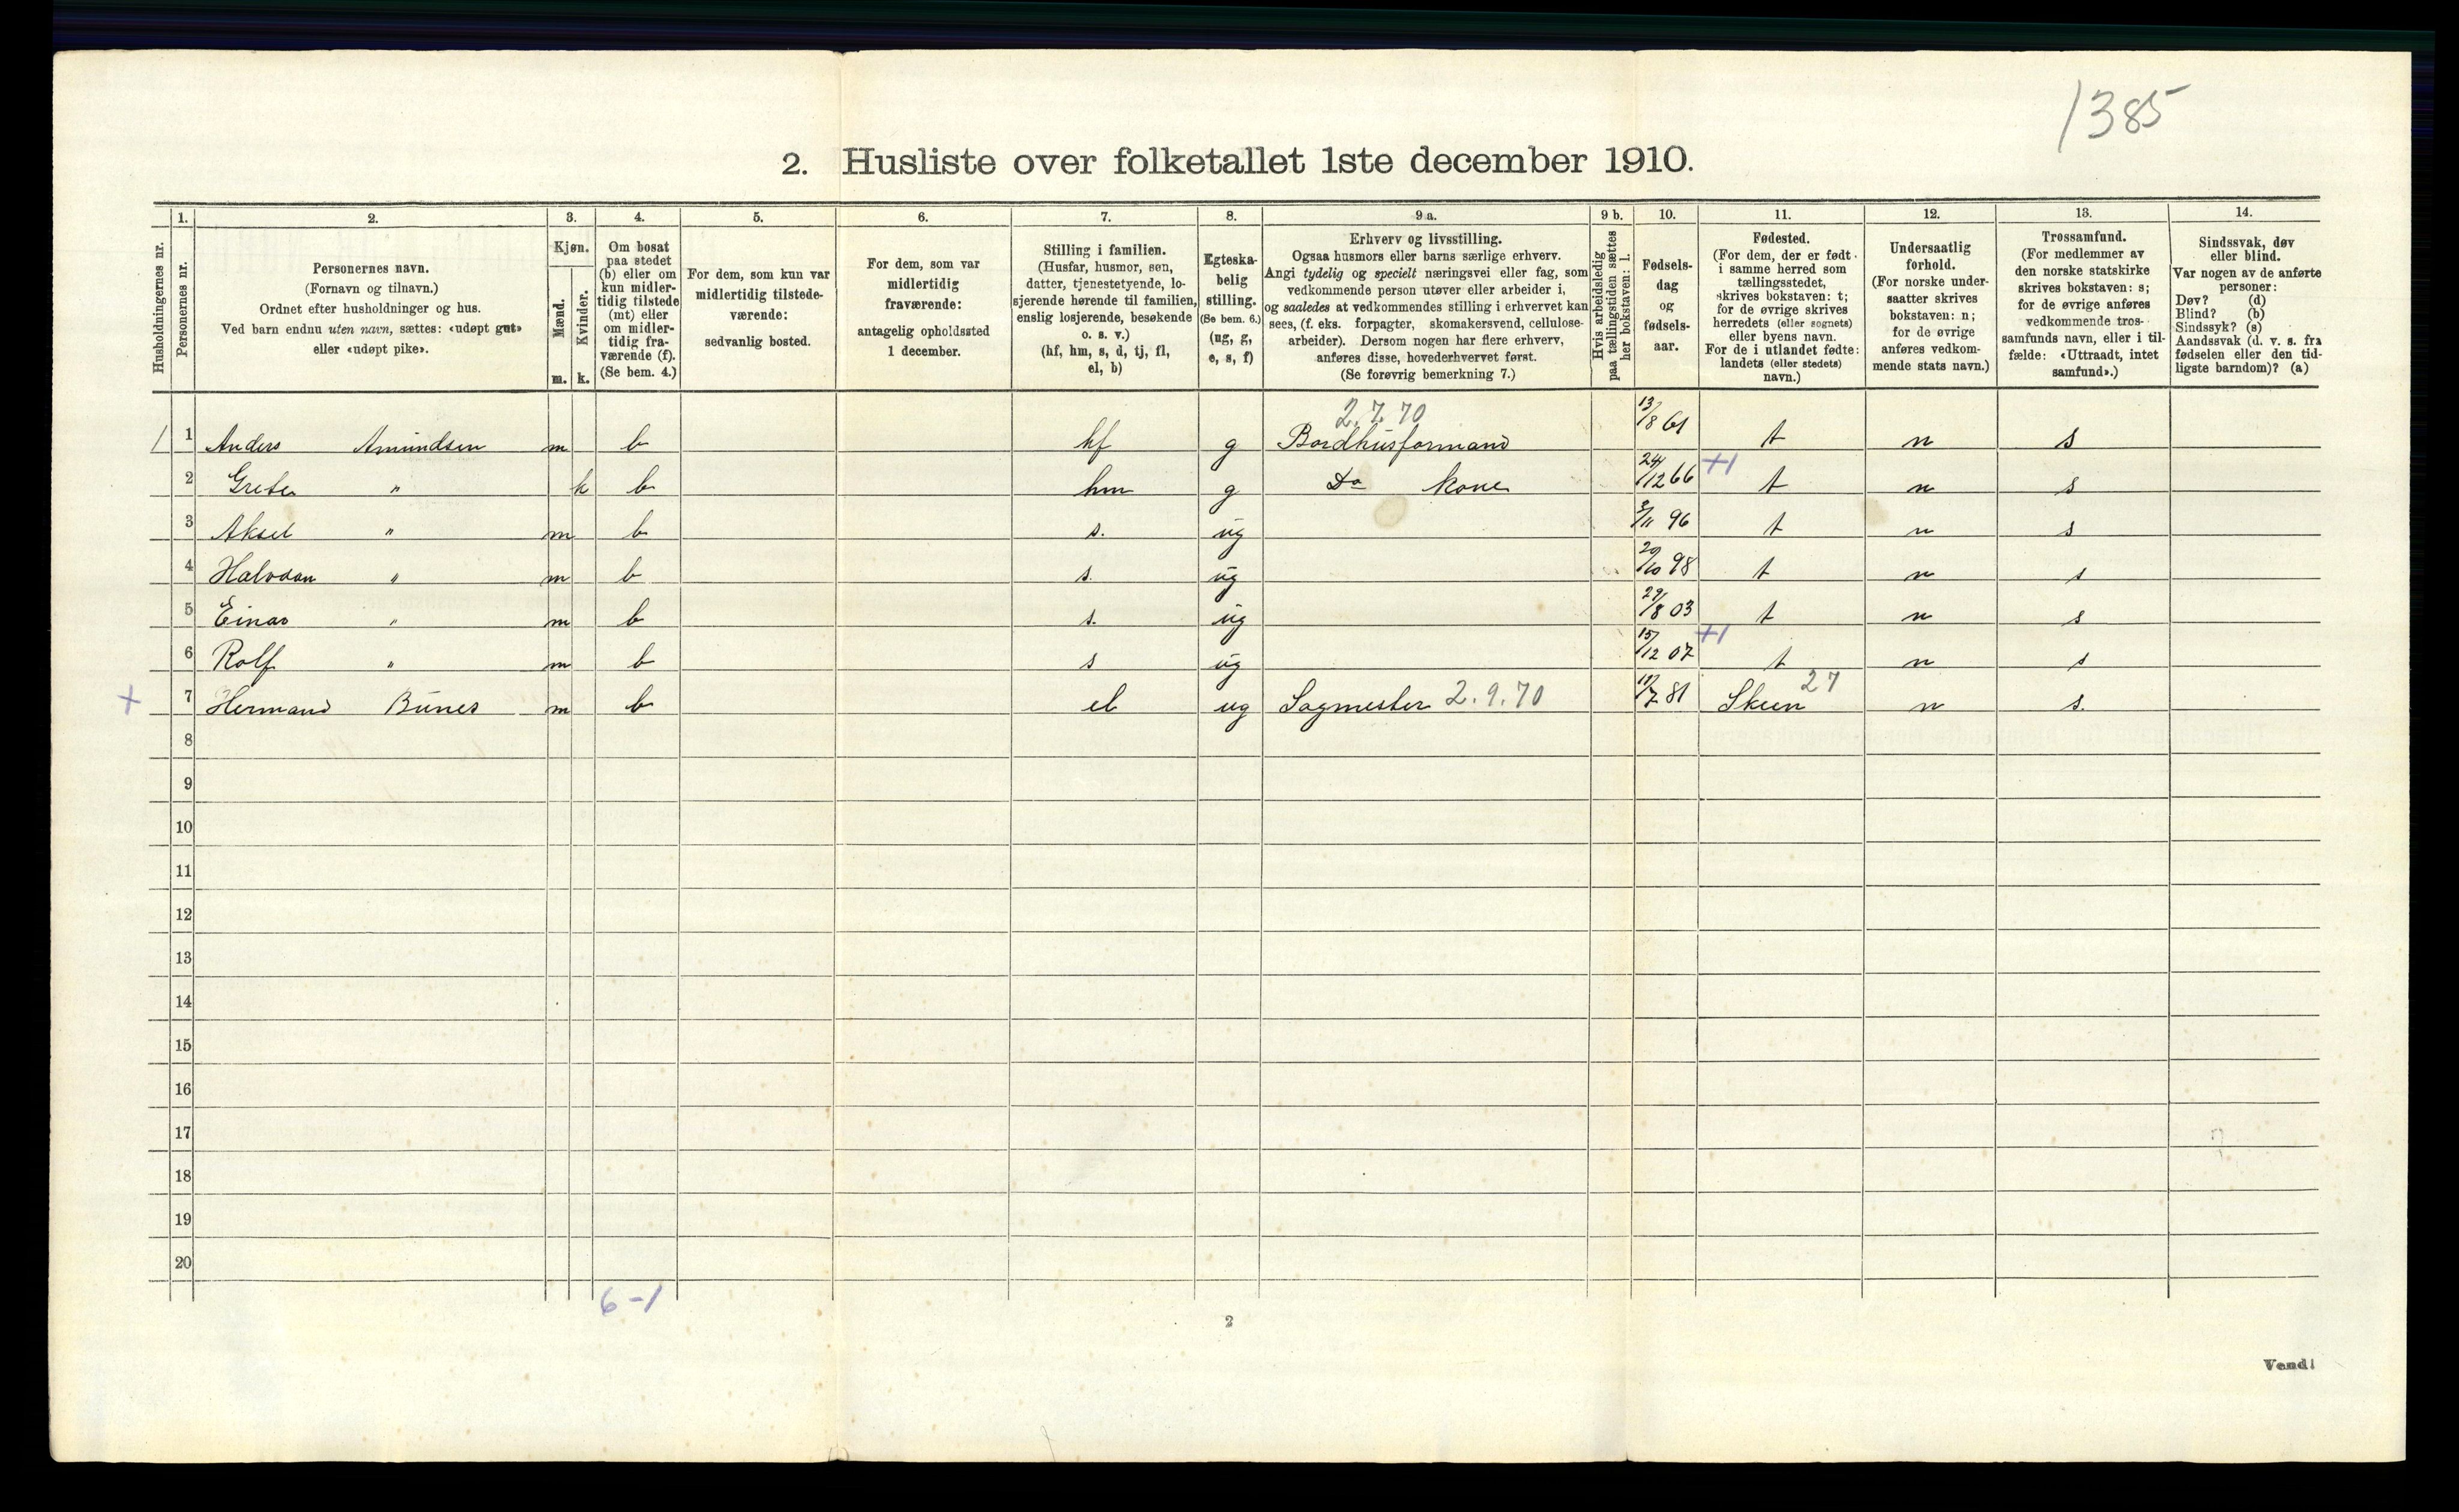 1385
2. Husliste over folketallet 1ste december 1910.
Husholdningernes nr.
1. Personernes nr.
2. Personernes navn.
(Fornavn og tilnavn.)
Ordnet efter husholdninger og hus.
Ved barn endnu uten navn, sættes: «udøpt gut»
eller «udøpt pike».
3. Kjøn.
Mænd. m.
Kvinder. k.
4. Om bosat
paa stedet
(b) eller om
kun midler-
tidig tilstede
(mt) eller
om midler-
tidig fra-
værende (f).
(Se bem. 4.)
5. For dem, som kun var
midlertidig tilstede-
værende:
sedvanlig bosted.
6. For dem, som var
midlertidig
fraværende:
antagelig opholdssted
1 december.
7. Stilling i familien.
(Husfar, husmor, søn,
datter, tjenestetyende, lo-
sjerende hørende til familien,
enslig losjerende, besøkende
o. s. v.)
(hf, hm, s, d, tj, fl,
el, b)
8. Egteska-
belig
stilling.
(Se bem. 6.)
(ug, g,
e, s, f)
9 a. Erhverv og livsstilling.
Ogsaa husmors eller barns særlige erhverv.
Angi tydelig og specielt næringsvei eller fag, som
vedkommende person utøver eller arbeider i,
og saaledes at vedkommendes stilling i erhvervet kan
sees, (f. eks. forpagter, skomakersvend, cellulose-
arbeider). Dersom nogen har flere erhverv,
anføres disse, hovederhvervet først.
(Se forøvrig bemerkning 7.)
9 b. Hvis arbeidsledig
paa tællingstiden sættes
her bokstaven: l.
10. Fødsels-
dag
og
fødsels-
aar.
11. Fødested.
(For dem, der er født
i samme herred som
tællingsstedet,
skrives bokstaven: t;
for de øvrige skrives
herredets (eller sognets)
eller byens navn.
For de i utlandet fødte:
landets (eller stedets)
navn.)
12. Undersaatlig
forhold.
(For norske under-
saatter skrives
bokstaven: n;
for de øvrige
anføres vedkom-
mende stats navn.)
13. Trossamfund.
(For medlemmer av
den norske statskirke
skrives bokstaven: s;
for de øvrige anføres
vedkommende tros-
samfunds navn, eller i til-
fælde: «Uttraadt, intet
samfund».)
14. Sindssvak, døv
eller blind.
Var nogen av de anførte
personer:
Døv? (d)
Blind? (b)
Sindssyk? (s)
Aandssvak (d. v. s. fra
fødselen eller den tid-
ligste barndom)? (a)
2.7.70
1 1 Anders Amundsen m b hf g Bordhusformand 13/8 61 t n s
2 Grete " k b hm g Do kone 24/12 66 +1 t n s
3 Aksel " m b s. ug 3/11 96 t n s
4 Halvdan " m b s. ug 20/10 98 t n s
5 Einar " m b s. ug 29/8 03 t n s
6 Rolf " m b s ug 15/12 07 +1 t n s
+ 7 Hermand Bünes m b el ug Sagmester 2.9.70 11/7 81 Skeen 27 n s.
8
9
10
11
12
13
14
15
16
17
18
19
20
6-1
2
Vend!